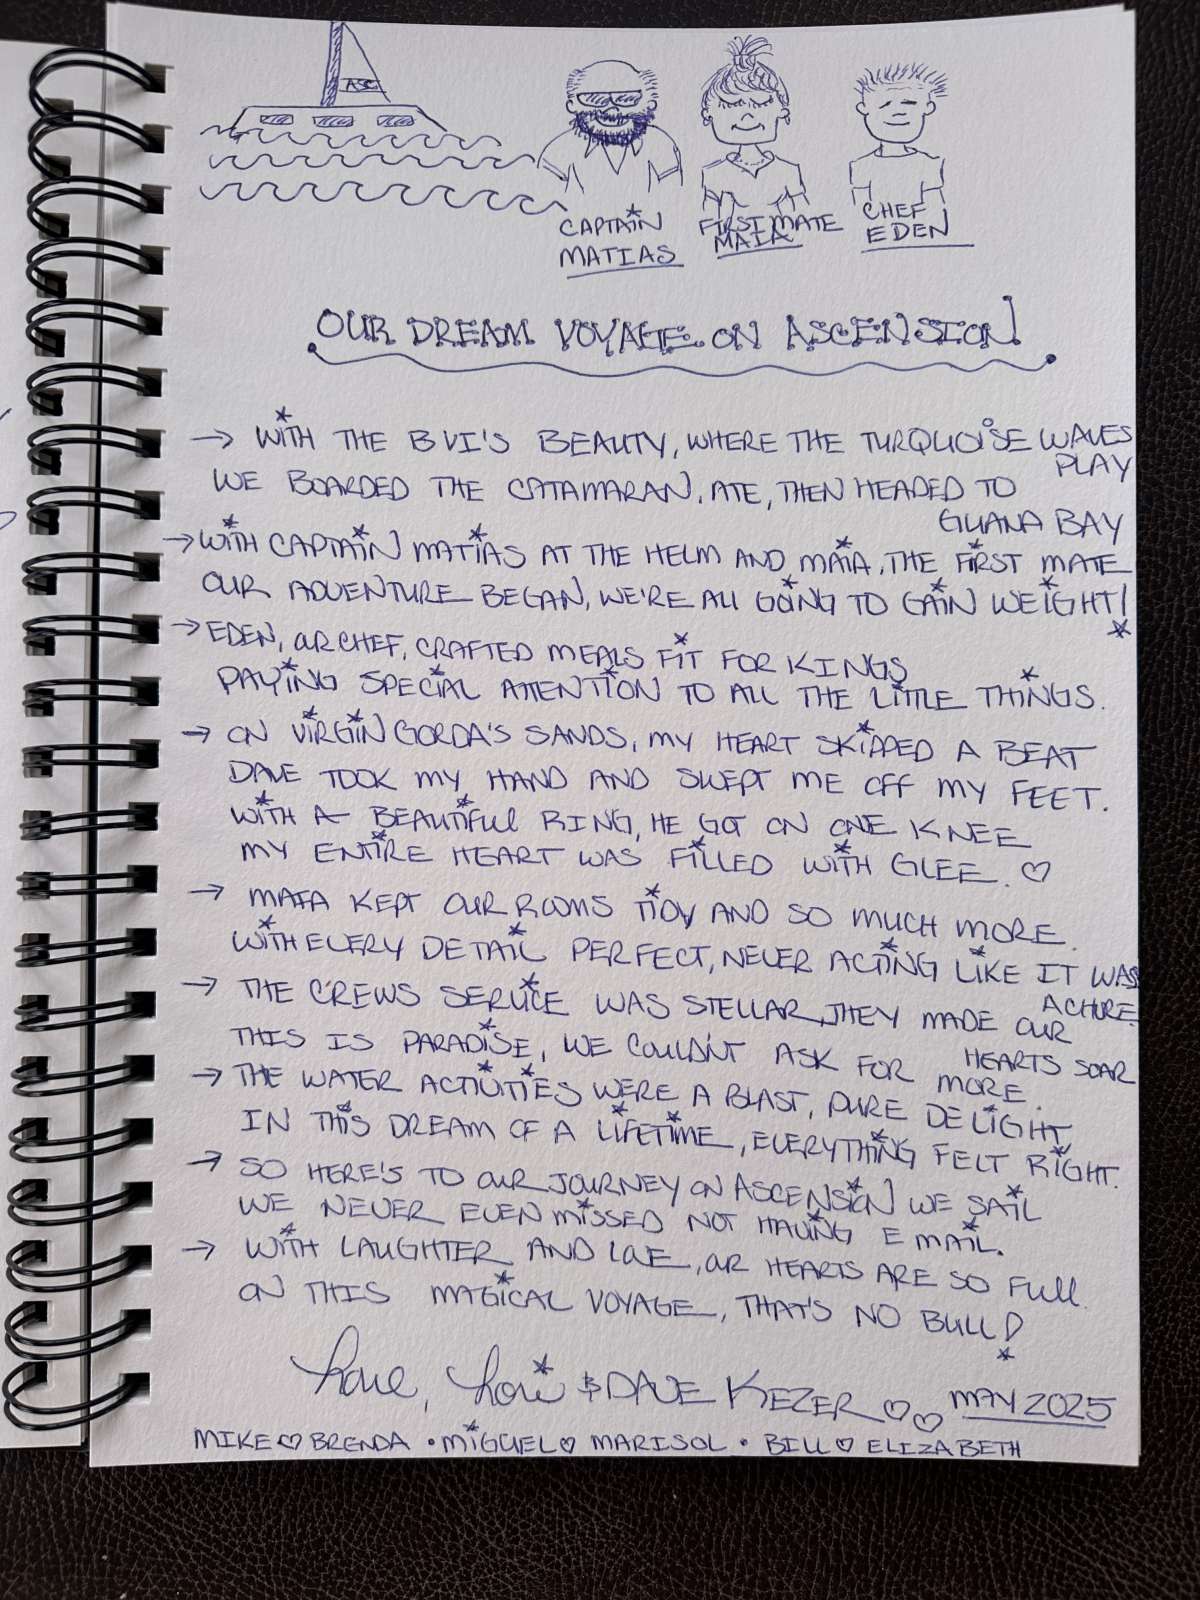 ASC
CAPTAIN
MATIAS
FIRST MATE
MAIA
CHEF
EDEN
OUR DREAM VOYAGE ON ASCENSION!
→ WITH THE BVI'S BEAUTY, WHERE THE TURQUOISE WAVES
PLAY
WE BOARDED THE CATAMARAN, ATE, THEN HEADED TO
GUANA BAY
→ WITH CAPTAIN MATIAS AT THE HELM AND MAIA, THE FIRST MATE
OUR ADVENTURE BEGAN, WE'RE ALL GOING TO GAIN WEIGHT!
→ EDEN, OUR CHEF, CRAFTED MEALS FIT FOR KINGS
PAYING SPECIAL ATTENTION TO ALL THE LITTLE THINGS.
→ ON VIRGIN GORDA'S SANDS, MY HEART SKIPPED A BEAT
DAVE TOOK MY HAND AND SWEPT ME OFF MY FEET.
WITH A BEAUTIFUL RING, HE GOT ON ONE KNEE
MY ENTIRE HEART WAS FILLED WITH GLEE. ♡
→ MAIA KEPT OUR ROOMS TIDY AND SO MUCH MORE.
WITH EVERY DETAIL PERFECT, NEVER ACTING LIKE IT WAS
A CHORE.
→ THE CREWS SERVICE WAS STELLAR, THEY MADE OUR
HEARTS SOAR
THIS IS PARADISE, WE COULDN'T ASK FOR
MORE.
→ THE WATER ACTIVITIES WERE A BLAST, PURE DELIGHT
IN THIS DREAM OF A LIFETIME, EVERYTHING FELT RIGHT.
→ SO HERE'S TO OUR JOURNEY ON ASCENSION WE SAIL
WE NEVER EVEN MISSED NOT HAVING EMAIL.
→ WITH LAUGHTER AND LOVE, OUR HEARTS ARE SO FULL.
ON THIS MAGICAL VOYAGE, THAT'S NO BULL!
Love, Lori & DAVE KEZER ♡♡ MAY 2025
MIKE ♡ BRENDA • MIGUEL ♡ MARISOL • BILL ♡ ELIZABETH